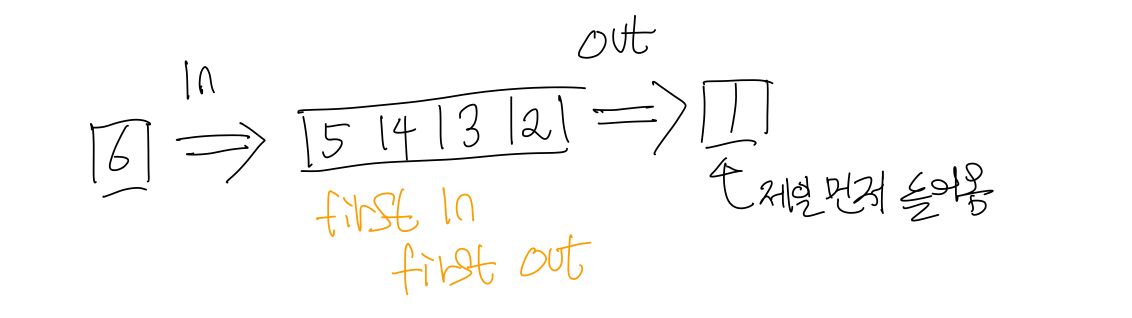 In
out
6 ⇒ |5|4|3|2| ⇒ 1
first In
first out
제일 먼저 들어옴